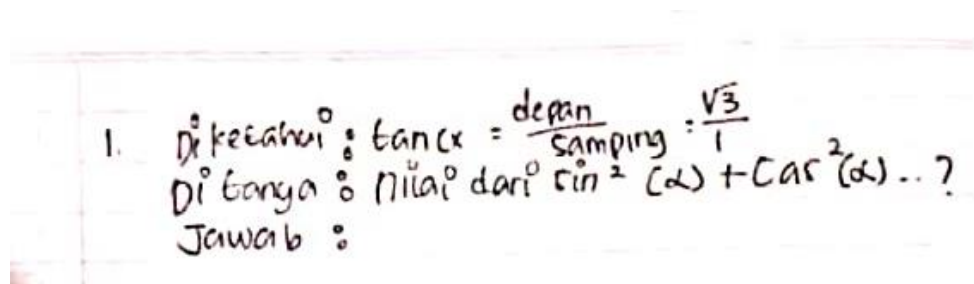 1. Diketahui : tan α = depan/samping = √3/1
Ditanya : Nilai dari sin² (α) + cos² (α) ..?
Jawab :